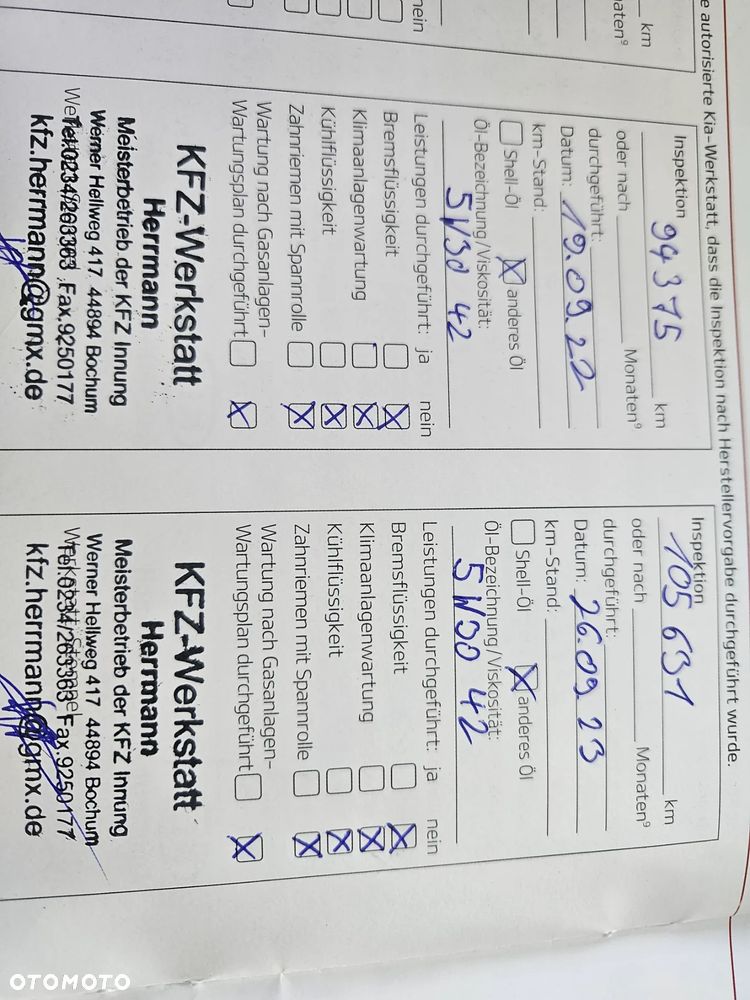 e autorisierte Kia-Werkstatt, dass die Inspektion nach Herstellervorgabe durchgeführt wurde.
km
aten⁹
nein
Inspektion
94 375 km
oder nach Monaten⁹
durchgeführt:
Datum: 19.09.22
km-Stand:
Shell-Öl X anderes Öl
Öl-Bezeichnung/Viskosität:
5W30 42
Leistungen durchgeführt: ja nein
Bremsflüssigkeit X
Klimaanlagenwartung X
Kühlflüssigkeit X
Zahnriemen mit Spannrolle X
Wartung nach Gasanlagen-
Wartungsplan durchgeführt X
KFZ-Werkstatt
Herrmann
Meisterbetrieb der KFZ Innung
Werner Hellweg 417 44894 Bochum
Tel.0234/263363 Fax.9250177
kfz.herrmann@gmx.de
Inspektion
105 631 km
oder nach Monaten⁹
durchgeführt:
Datum: 26.09.23
km-Stand:
Shell-Öl X anderes Öl
Öl-Bezeichnung/Viskosität:
5W30 42
Leistungen durchgeführt: ja nein
Bremsflüssigkeit X
Klimaanlagenwartung X
Kühlflüssigkeit X
Zahnriemen mit Spannrolle X
Wartung nach Gasanlagen-
Wartungsplan durchgeführt X
KFZ-Werkstatt
Herrmann
Meisterbetrieb der KFZ Innung
Werner Hellweg 417 44894 Bochum
Tel.0234/263363 Fax.9250177
kfz.herrmann@gmx.de
OTOMOTO